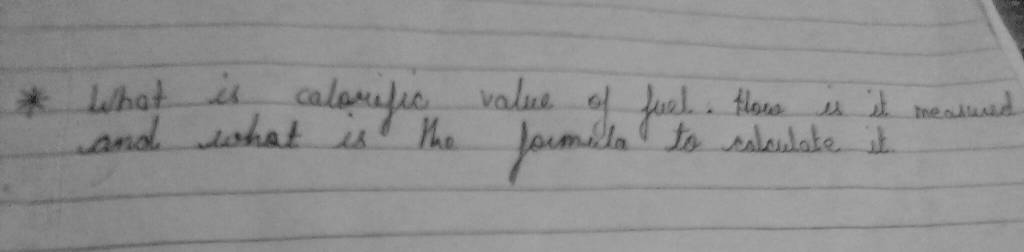 * What is calorific value of fuel. How is it measured
and what is the formula to calculate it.